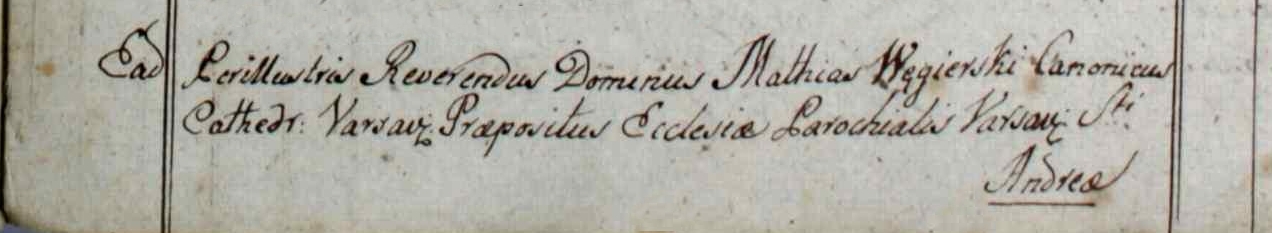 Ead Perillustris Reverendus Dominus Mathias Węgierski Canonicus
Cathedr: Varsav: Præpositus Ecclesiæ Parochialis Varsav: Sti
Andreæ